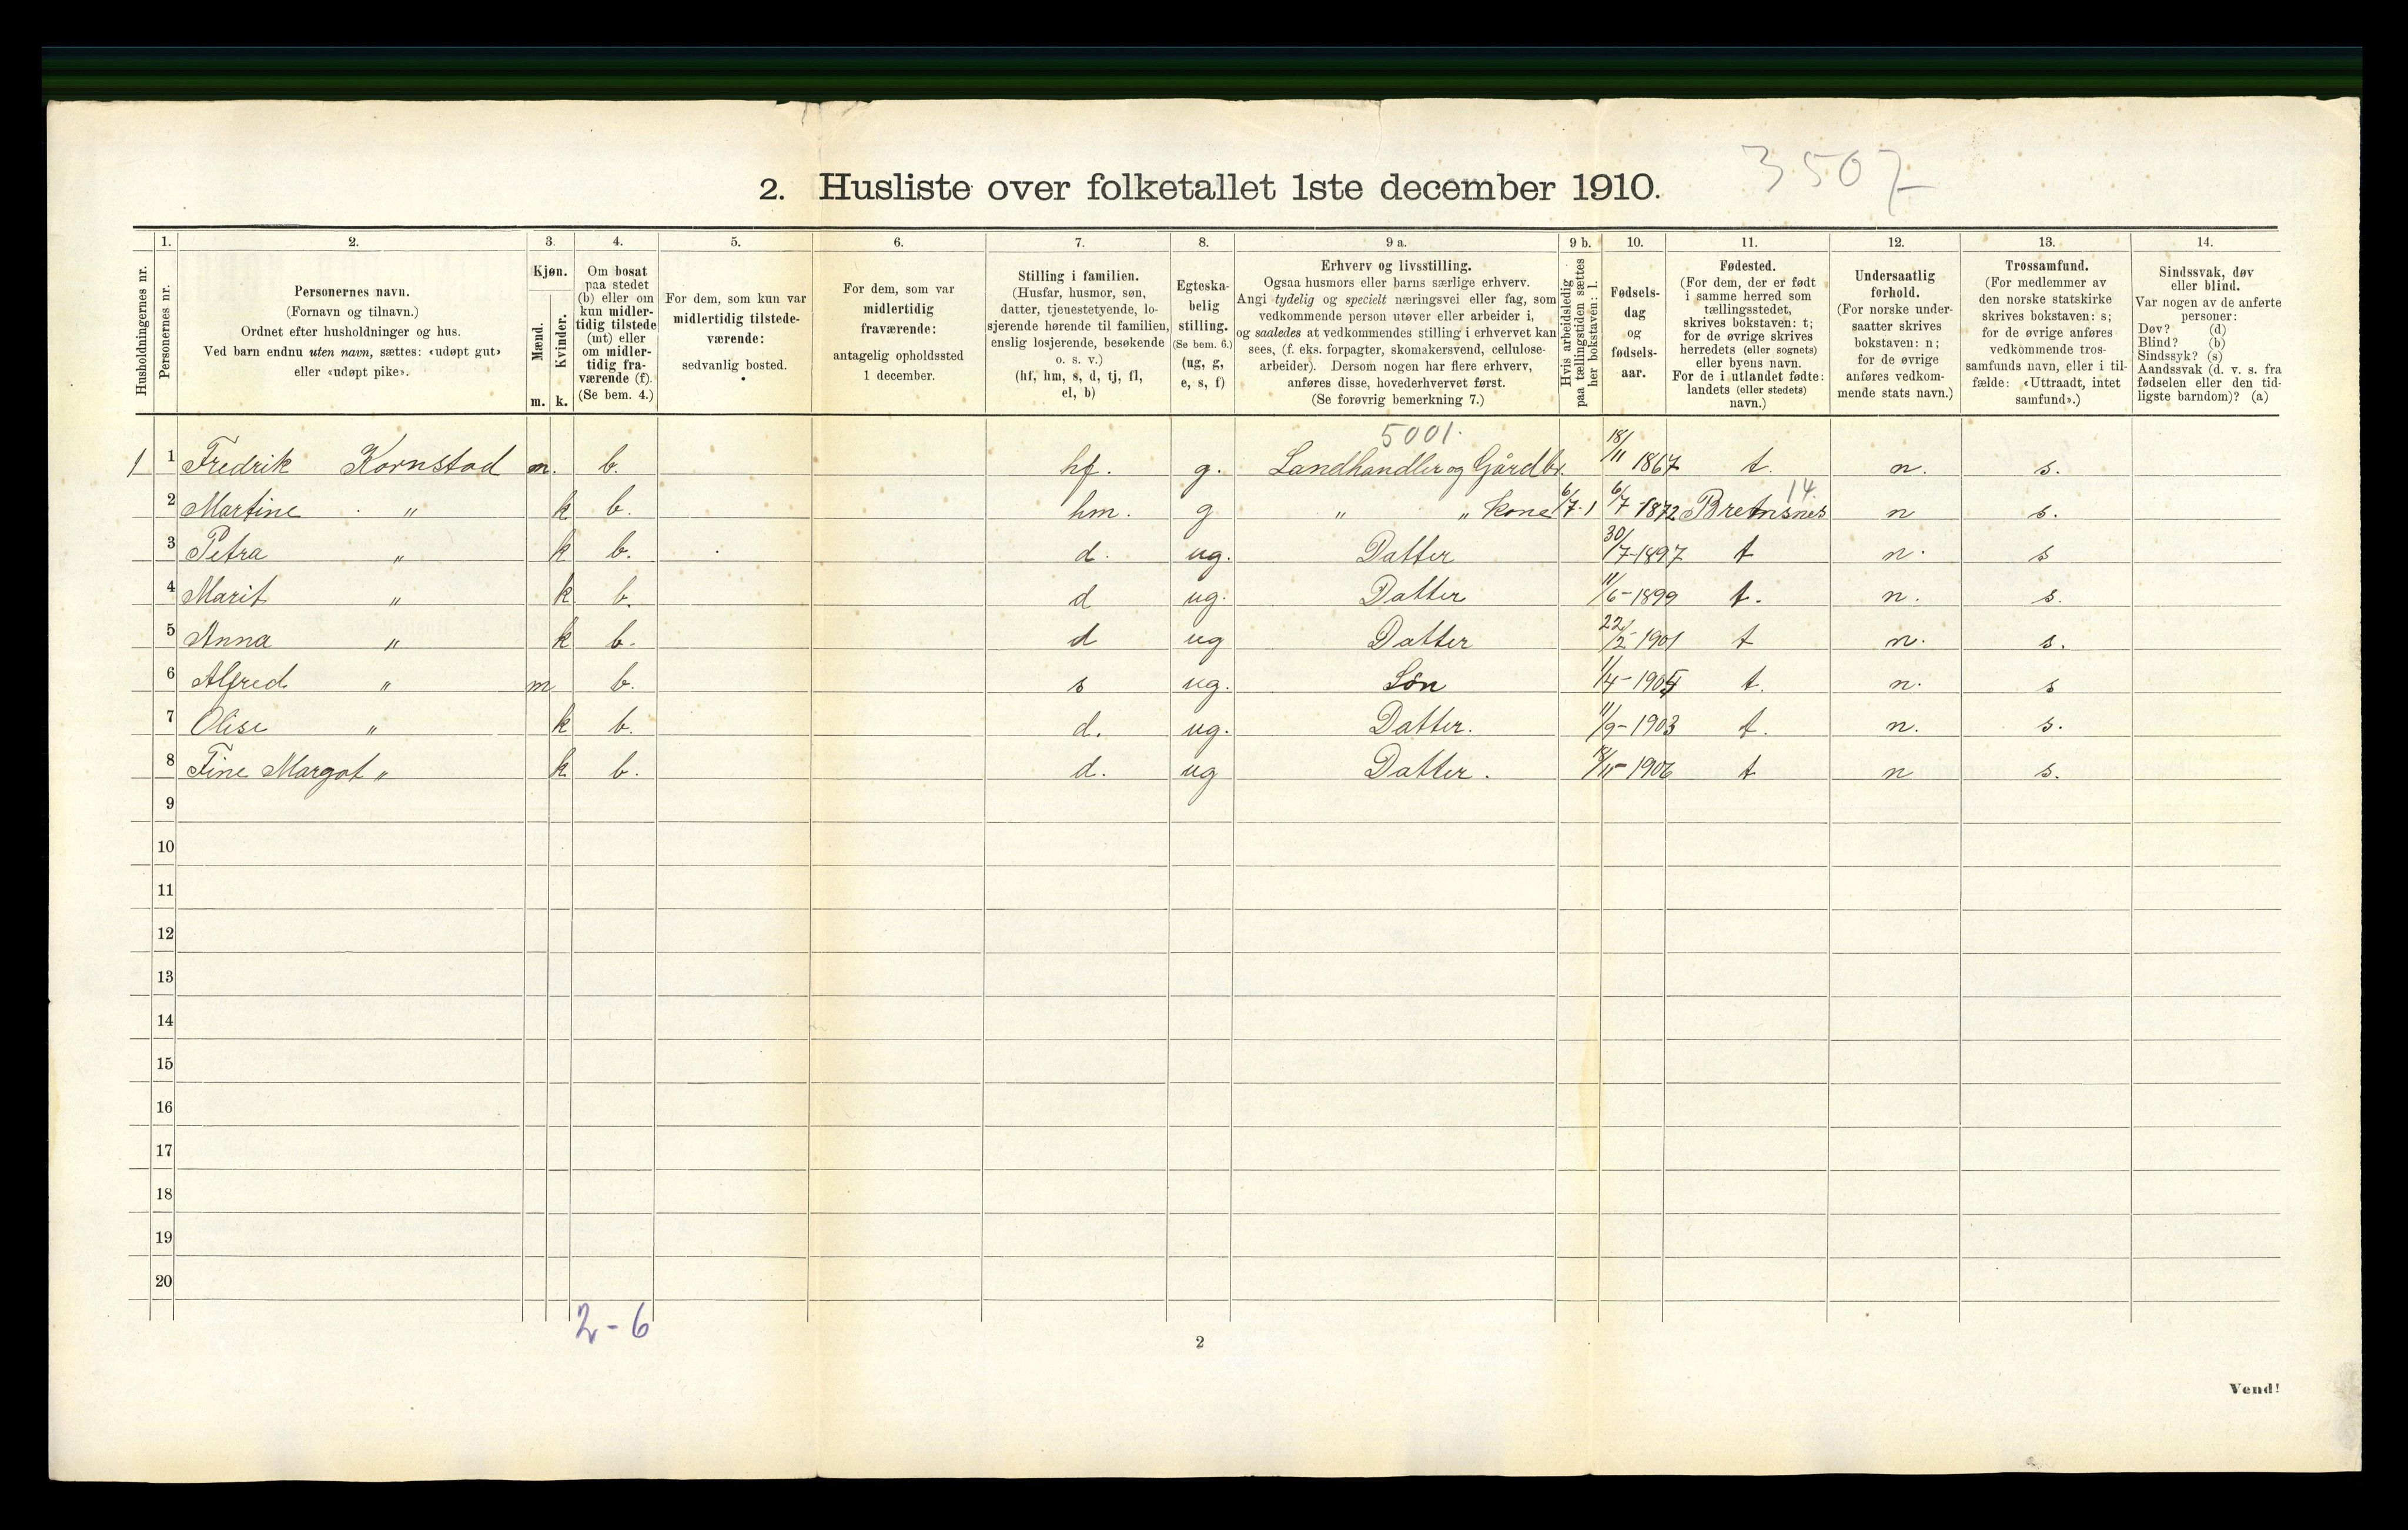 3507
2. Husliste over folketallet 1ste december 1910.
Husholdningernes nr.
1.
Personernes nr.
2.
Personernes navn.
(Fornavn og tilnavn.)
Ordnet efter husholdninger og hus.
Ved barn endnu uten navn, sættes: «udøpt gut»
eller «udøpt pike».
3.
Kjøn.
Mænd.
Kvinder.
m. k.
4.
Om bosat
paa stedet
(b) eller om
kun midler-
tidig tilstede
(mt) eller
om midler-
tidig fra-
værende (f).
(Se bem. 4.)
5.
For dem, som kun var
midlertidig tilstede-
værende:
sedvanlig bosted.
6.
For dem, som var
midlertidig
fraværende:
antagelig opholdssted
1 december.
7.
Stilling i familien.
(Husfar, husmor, søn,
datter, tjenestetyende, lo-
sjerende hørende til familien,
enslig losjerende, besøkende
o. s. v.)
(hf, hm, s, d, tj, fl,
el, b)
8.
Egteska-
belig
stilling.
(Se bem. 6.)
(ug, g,
e, s, f)
9 a.
Erhverv og livsstilling.
Ogsaa husmors eller barns særlige erhverv.
Angi tydelig og specielt næringsvei eller fag, som
vedkommende person utøver eller arbeider i,
og saaledes at vedkommendes stilling i erhvervet kan
sees, (f. eks. forpagter, skomakersvend, cellulose-
arbeider). Dersom nogen har flere erhverv,
anføres disse, hovederhvervet først.
(Se forøvrig bemerkning 7.)
9 b.
Hvis arbeidsledig
paa tællingstiden sættes
her bokstaven: l.
10.
Fødsels-
dag
og
fødsels-
aar.
11.
Fødested.
(For dem, der er født
i samme herred som
tællingsstedet,
skrives bokstaven: t;
for de øvrige skrives
herredets (eller sognets)
eller byens navn.
For de i utlandet fødte:
landets (eller stedets)
navn.)
12.
Undersaatlig
forhold.
(For norske under-
saatter skrives
bokstaven: n;
for de øvrige
anføres vedkom-
mende stats navn.)
13.
Trossamfund.
(For medlemmer av
den norske statskirke
skrives bokstaven: s;
for de øvrige anføres
vedkommende tros-
samfunds navn, eller i til-
fælde: «Uttraadt, intet
samfund».)
14.
Sindssvak, døv
eller blind.
Var nogen av de anførte
personer:
Døv? (d)
Blind? (b)
Sindssyk? (s)
Aandssvak (d. v. s. fra
fødselen eller den tid-
ligste barndom)? (a)
5001.
1 1 Fredrik Kornstad m. b. hf. g. Landhandler og Gårdbr. 18/11 1867 t. n. s.
14.
2 Martine " k b. hm. g " " kone 6/7 1 6/7-1872 Bremsnes n s.
3 Petra " k b. d. ug. Datter 30/7-1897 t n. s
4 Marit " k b. d ug. Datter 11/6-1899 t. n. s.
5 Anna " k b. d ug Datter 22/2-1901 t n. s.
6 Alfred " m b. s ug. Sön 1/4-1905 t. n. s
7 Olise " k b. d. ug. Datter. 11/9-1903 t. n. s.
8 Fine Margot " k b. d. ug Datter. /11-1906 t n s.
9
10
11
12
13
14
15
16
17
18
19
20
2-6
2
Vend!